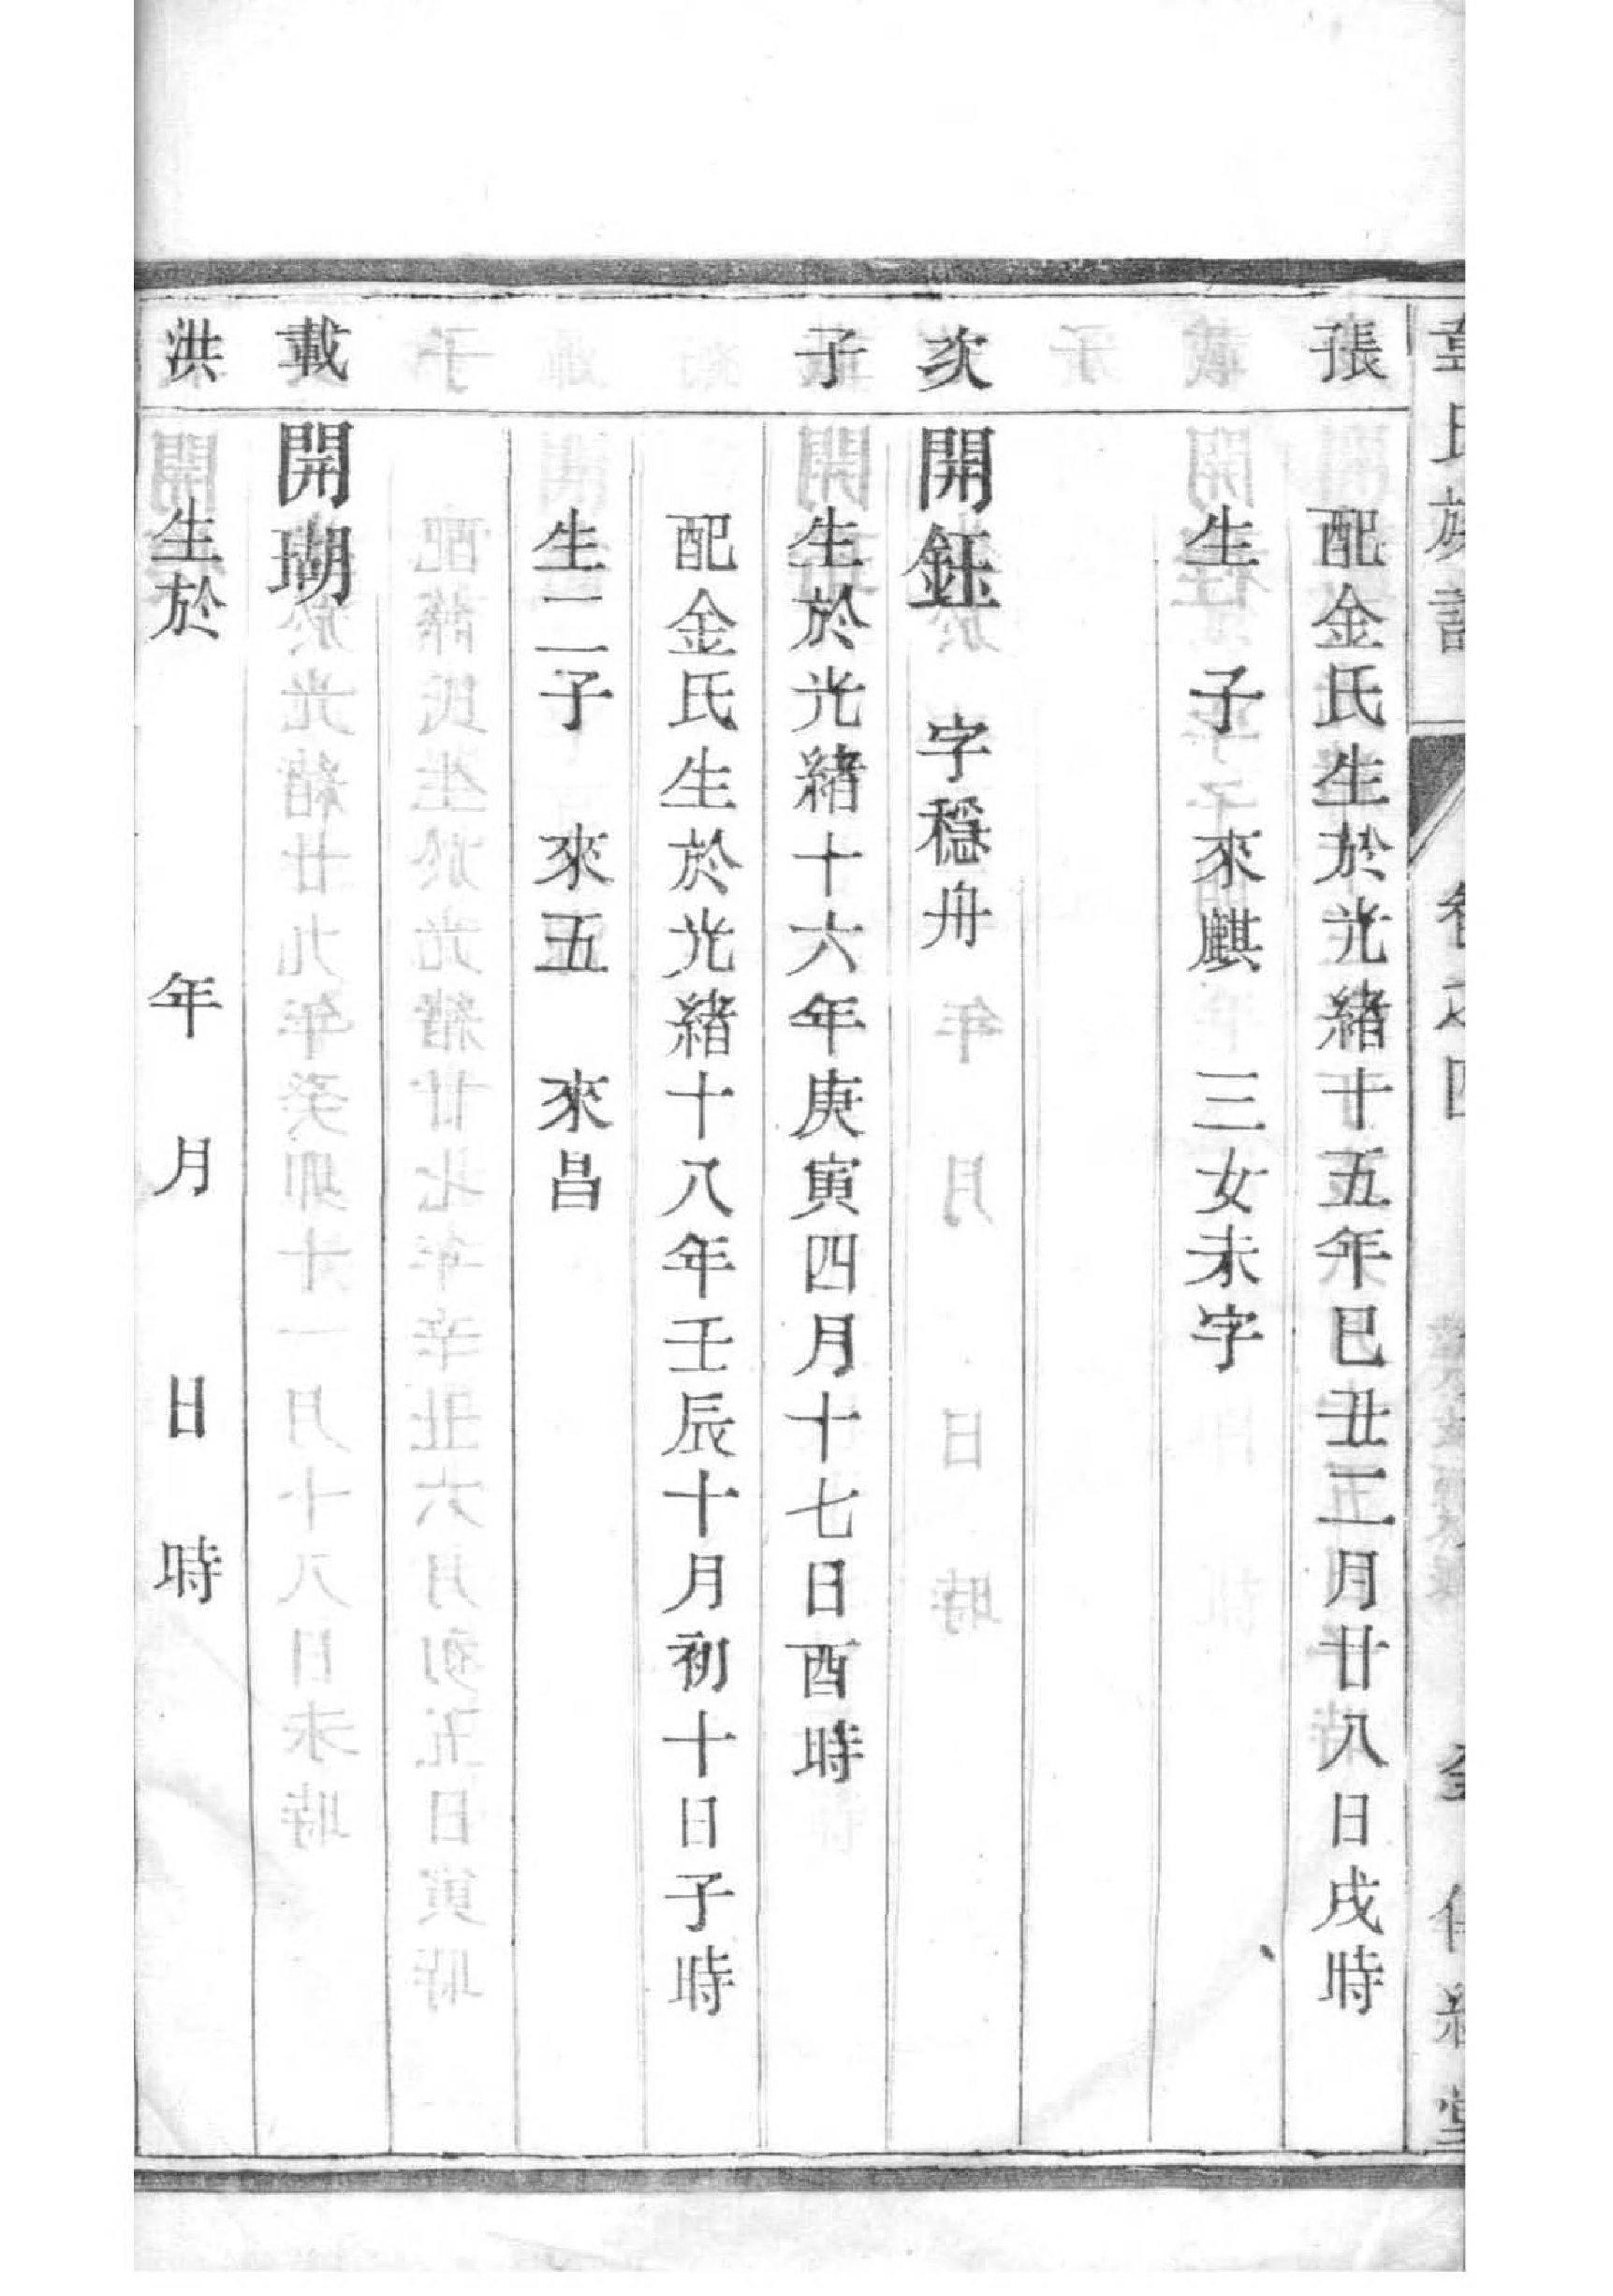 氏族譜 卷之四
張 配金氏生於光緒十五年巳丑二月廿八日戌時
生 子 來麒 三女未字
次 開鈺 字穩舟
子 生於光緒十六年庚寅四月十七日酉時
配金氏生於光緒十八年壬辰十月初十日子時
生二子 來五 來昌
載 開瑚
洪 生於 年 月 日 時